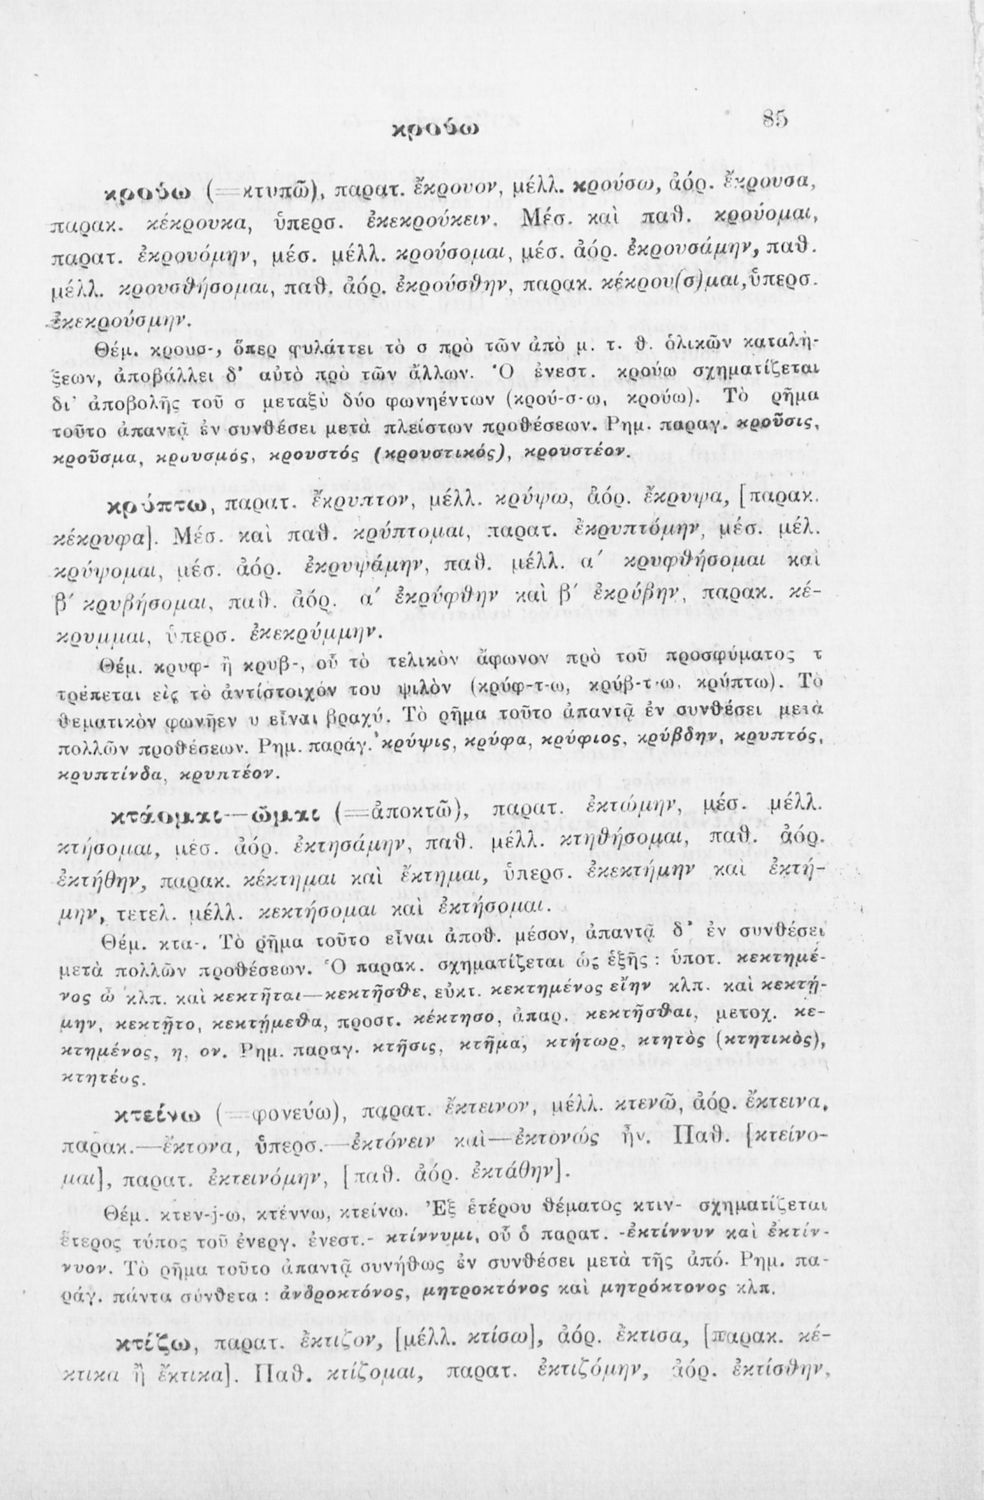 κρούω
85
κρούω (=κτυπῶ), παρατ. ἔκρουον, μέλλ. κρούσω, ἀόρ. ἔκρουσα,
παρακ. κέκρουκα, ὑπερσ. ἐκεκρούκειν. Μέσ. καὶ παθ. κρούομαι,
παρατ. ἐκρουόμην, μέσ. μέλλ. κρούσομαι, μέσ. ἀόρ. ἐκρουσάμην, παθ.
μέλλ. κρουσθήσομαι, παθ. ἀόρ. ἐκρούσθην, παρακ. κέκρου(σ)μαι, ὑπερσ.
ἐκεκρούσμην.
Θέμ. κρουσ-, ὅπερ φυλάττει τὸ σ πρὸ τῶν ἀπὸ μ. τ. θ. ὁλικῶν καταλή-
ξεων, ἀποβάλλει δ' αὐτὸ πρὸ τῶν ἄλλων. Ὁ ἐνεστ. κρούω σχηματίζεται
δι' ἀποβολῆς τοῦ σ μεταξὺ δύο φωνηέντων (κρού-σ-ω, κρούω). Τὸ ρῆμα
τοῦτο ἀπαντᾷ ἐν συνθέσει μετὰ πλείστων προθέσεων. Ρημ. παραγ. κροῦσις,
κροῦσμα, κρουσμός, κρουστός (κρουστικός), κρουστέον.
κρύπτω, παρατ. ἔκρυπτον, μέλλ. κρύψω, ἀόρ. ἔκρυψα, [παρακ.
κέκρυφα]. Μέσ. καὶ παθ. κρύπτομαι, παρατ. ἐκρυπτόμην, μέσ. μέλ.
κρύψομαι, μέσ. ἀόρ. ἐκρυψάμην, παθ. μέλλ. α' κρυφθήσομαι καὶ
β' κρυβήσομαι, παθ. ἀόρ. α' ἐκρύφθην καὶ β' ἐκρύβην, παρακ. κέ-
κρυμμαι, ὑπερσ. ἐκεκρύμμην.
Θέμ. κρυφ- ἢ κρυβ-, οὗ τὸ τελικὸν ἄφωνον πρὸ τοῦ προσφύματος τ
τρέπεται εἰς τὸ ἀντίστοιχόν του ψιλὸν (κρύφ-τ-ω, κρύβ-τ-ω, κρύπτω). Τὸ
θεματικὸν φωνῆεν υ εἶναι βραχύ. Τὸ ρῆμα τοῦτο ἀπαντᾷ ἐν συνθέσει μετὰ
πολλῶν προθέσεων. Ρημ. παράγ. κρύψις, κρύφα, κρύφιος, κρύβδην, κρυπτός,
κρυπτίνδα, κρυπτέον.
κτάομαι—ῶμαι (=ἀποκτῶ), παρατ. ἐκτώμην, μέσ. μέλλ.
κτήσομαι, μέσ. ἀόρ. ἐκτησάμην, παθ. μέλλ. κτηθήσομαι, παθ. ἀόρ.
ἐκτήθην, παρακ. κέκτημαι καὶ ἔκτημαι, ὑπερσ. ἐκεκτήμην καὶ ἐκτή-
μην, τετελ. μέλλ. κεκτήσομαι καὶ ἐκτήσομαι.
Θέμ. κτα-. Τὸ ρῆμα τοῦτο εἶναι ἀποθ. μέσον, ἀπαντᾷ δ' ἐν συνθέσει
μετὰ πολλῶν προθέσεων. Ὁ παρακ. σχηματίζεται ὡς ἑξῆς : ὑποτ. κεκτημέ-
νος ὦ κλπ. καὶ κεκτῆται—κεκτῆσθε, εὐκτ. κεκτημένος εἴην κλπ. καὶ κεκτῄ-
μην, κεκτῇτο, κεκτῄμεθα, προστ. κέκτησο, ἀπαρ. κεκτῆσθαι, μετοχ. κε-
κτημένος, η, ον. Ρημ. παραγ. κτῆσις, κτῆμα, κτήτωρ, κτητὸς (κτητικὸς),
κτητέος.
κτείνω (=φονεύω), παρατ. ἔκτεινον, μέλλ. κτενῶ, ἀόρ. ἔκτεινα,
παρακ.—ἔκτονα, ὑπερσ.—ἐκτόνειν καὶ—ἐκτονώς ἦν. Παθ. [κτείνο-
μαι], παρατ. ἐκτεινόμην, [παθ. ἀόρ. ἐκτάθην].
Θέμ. κτεν-j-ω, κτέννω, κτείνω. Ἐξ ἑτέρου θέματος κτιν- σχηματίζεται
ἕτερος τύπος τοῦ ἐνεργ. ἐνεστ.- κτίννυμι, οὗ ὁ παρατ. -ἐκτίννυν καὶ ἐκτίν-
νυον. Τὸ ρῆμα τοῦτο ἀπαντᾷ συνήθως ἐν συνθέσει μετὰ τῆς ἀπό. Ρημ. πα-
ράγ. πάντα σύνθετα : ἀνδροκτόνος, μητροκτόνος καὶ μητρόκτονος κλπ.
κτίζω, παρατ. ἔκτιζον, [μέλλ. κτίσω], ἀόρ. ἔκτισα, [παρακ. κέ-
κτικα ἢ ἔκτικα]. Παθ. κτίζομαι, παρατ. ἐκτιζόμην, ἀόρ. ἐκτίσθην,